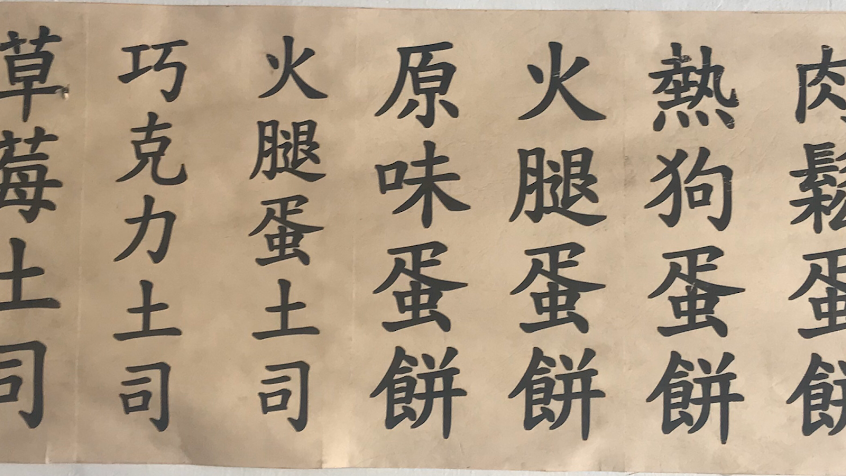 肉鬆蛋餅
熱狗蛋餅
火腿蛋餅
原味蛋餅
火腿蛋土司
巧克力土司
草莓土司